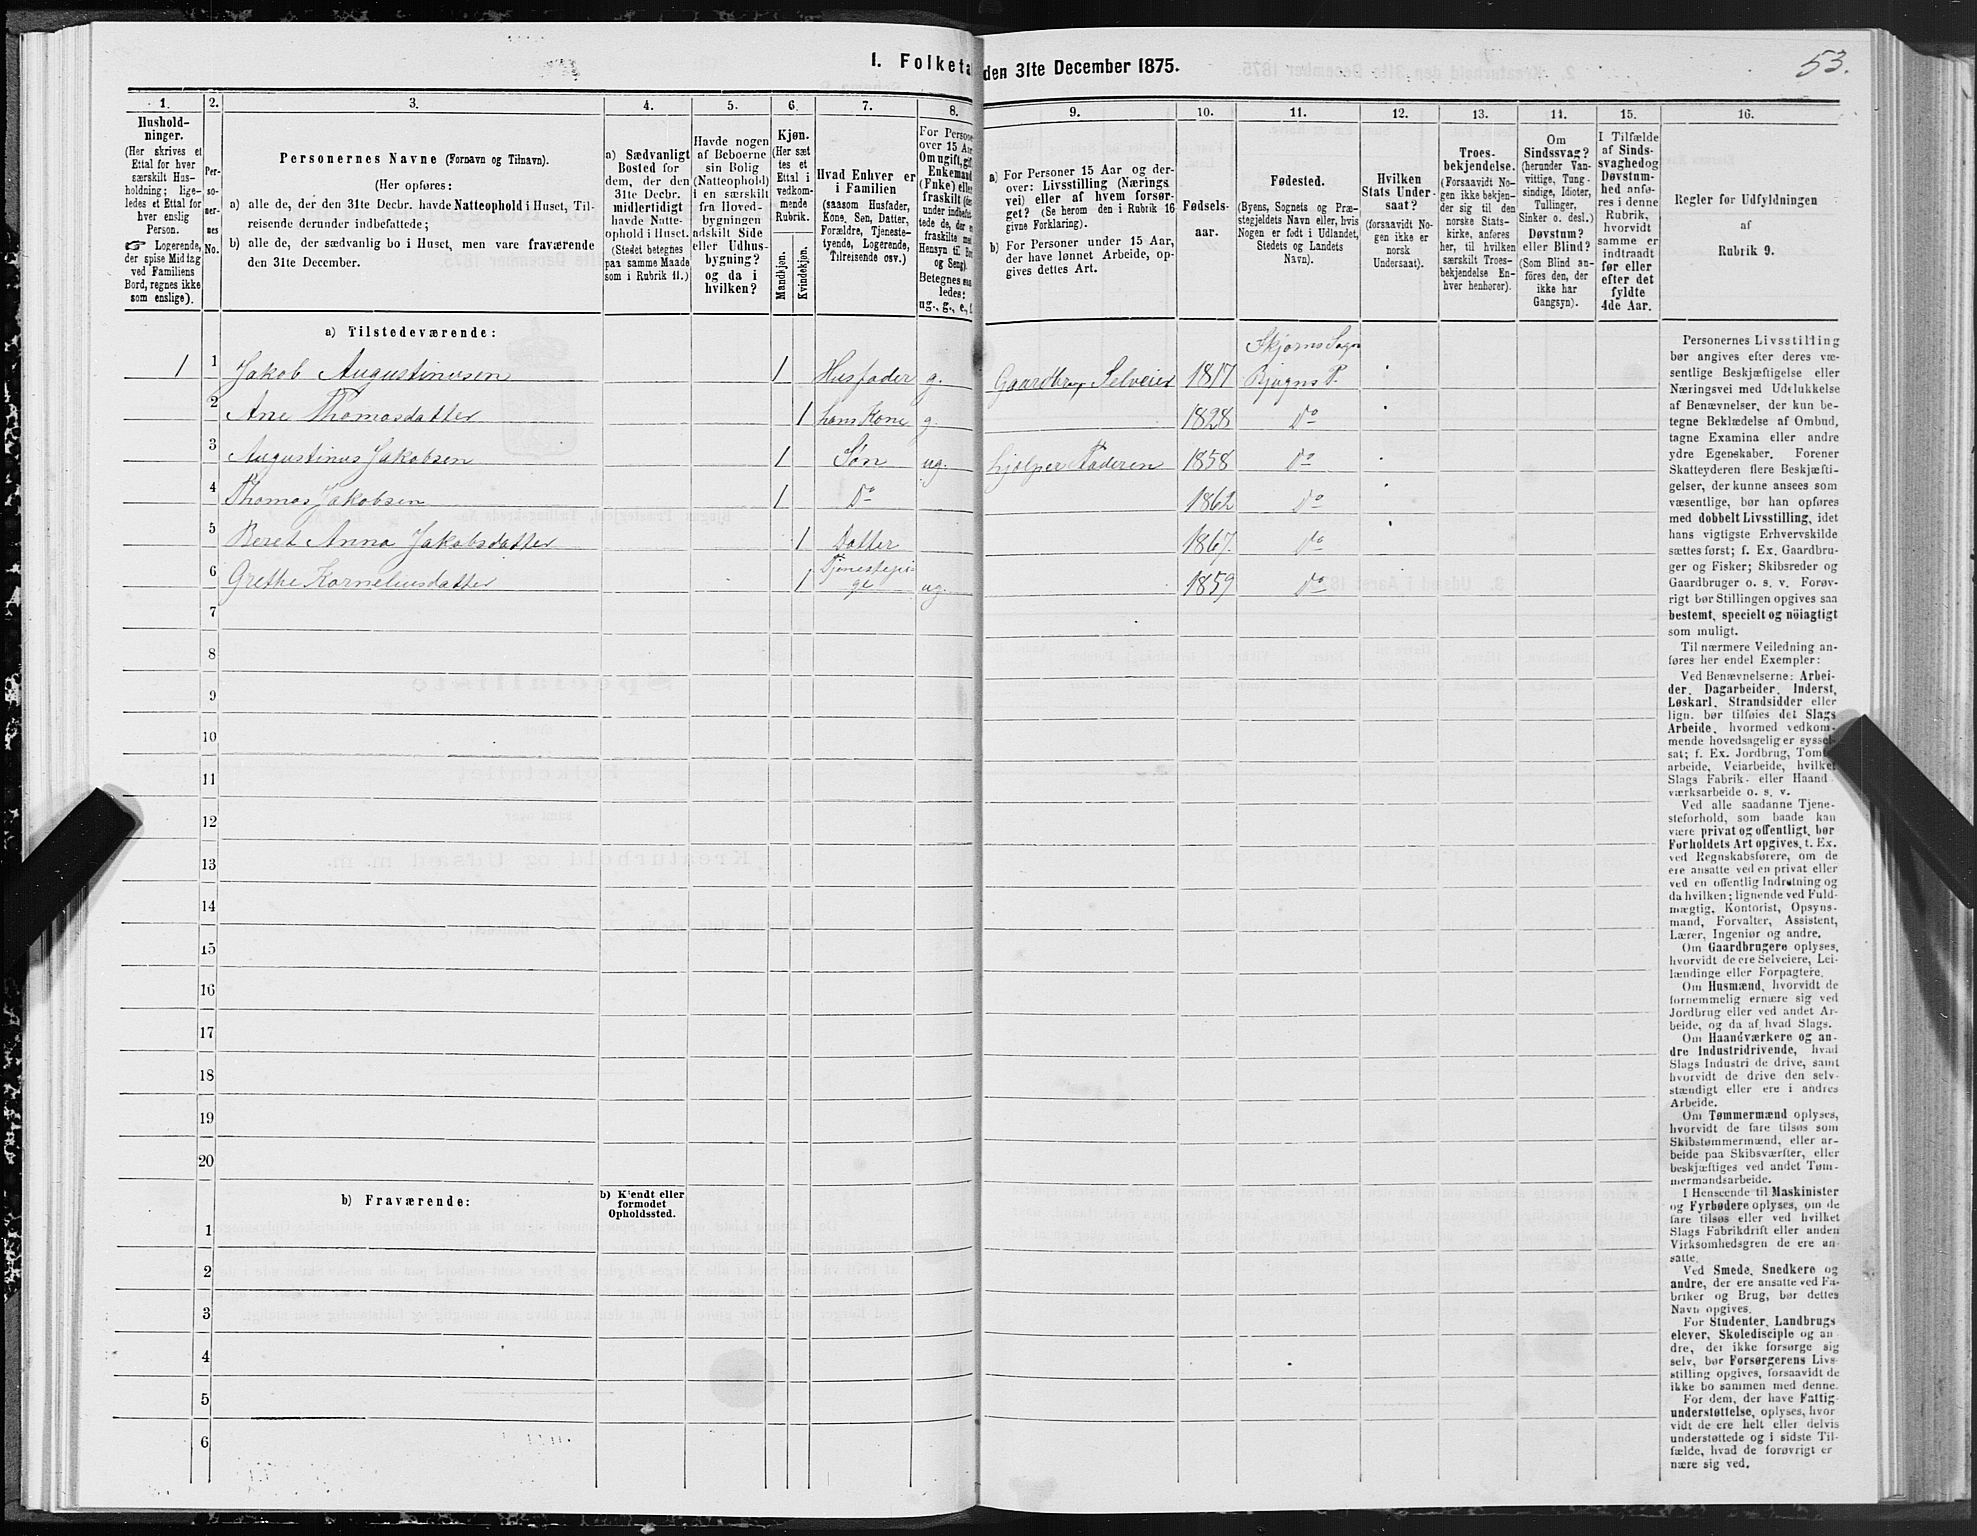 53.
1. Folketæ
den 31te December 1875.
1. 2. 3. 4. 5. 6. 7. 8. 9. 10. 11. 12. 13. 14. 15. 16.
Hushold-
ninger.
(Her skrives et
Ettal for hver
særskilt Hus-
holdning; lige-
ledes et Ettal for
hver enslig
Person.
☞ Logerende,
der spise Middag
ved Familiens
Bord, regnes ikke
som enslige).
Per-
so-
ner-
nes
No.
Personernes Navne (Fornavn og Tilnavn).
(Her opføres:
a) alle de, der den 31te Decbr. havde Natteophold i Huset, Til-
reisende derunder indbefattede;
b) alle de, der sædvanlig bo i Huset, men vare fraværende
den 31te December.
a) Sædvanligt
Bosted for
dem, der den
31te Decbr.
midlertidigt
havde Natte-
ophold i Huset.
(Stedet betegnes
paa samme Maade
som i Rubrik 11.)
Havde nogen
af Beboerne
sin Bolig
(Natteophold)
i en særskilt
fra Hoved-
bygningen
adskilt Side
eller Udhus-
bygning?
og da i
hvilken?
Kjøn.
(Her sæt
tes et
Ettal i
vedkom-
mende
Rubrik.
Mandkjøn.
Kvindekjøn.
Hvad Enhver er
i Familien
(saasom Husfader,
Kone, Søn, Datter,
Forældre, Tjeneste-
tyende, Logerende,
Tilreisende osv.)
For Persone
over 15 Aar
Om ugift, gif
Enkemand
(Enke) elle
fraskilt (de
under indbefat
tede de, der e
fraskilte med
Hensyn til Bor
og Seng).
Betegnes saa
ledes:
ug., g., e., f.
a) For Personer 15 Aar og der-
over: Livsstilling (Nærings
vei) eller af hvem forsør-
get? (Se herom den i Rubrik 16
givne Forklaring).
b) For Personer under 15 Aar,
der have lønnet Arbeide, op-
gives dettes Art.
Fødsels-
aar.
Fødested.
(Byens, Sognets og Præ-
stegjeldets Navn eller, hvis
Nogen er født i Udlandet,
Stedets og Landets
Navn).
Hvilken
Stats Under-
saat?
(forsaavidt No-
gen ikke er
norsk
Undersaat).
Troes-
bekjendelse.
(Forsaavidt No-
gen ikke bekjen-
der sig til den
norske Stats-
kirke, anføres
her, til hvilken
særskilt Troes-
bekjendelse En-
hver henhører).
Om
Sindssvag?
(herunder Van-
vittige, Tung-
sindige, Idioter,
Tullinger,
Sinker o. desl.)
Døvstum?
eller Blind?
(Som Blind an-
føres den, der
ikke har
Gangsyn).
I Tilfælde
af Sinds-
svaghed og
Døvstum-
hed anfø-
res i denne
Rubrik,
hvorvidt
samme er
indtraadt
før eller
efter det
fyldte
4de Aar.
Regler for Udfyldningen
af
Rubrik 9.
a) Tilstedeværende:
1 1 Jakob Augustinusen 1 Husfader g. Gaardbrug Selveier 1817 Skjørns Sogn
Bjugns P.
2 Ane Thomasdatter 1 hans Kone g. 1828 Do
3 Augustinus Jakobsen 1 Søn ug. hjelper Faderen 1858 Do
4 Thomas Jakobsen 1 Do 1862 Do
5 Beret Anna Jakobsdatter 1 Datter 1867. Do
6 Grethe Korneliusdatter 1 Tjenestepi-
ge ug. 1859 Do
7
8
9
10
11
12
13
14
15
16
17
18
19
20
b) Fraværende:
b) Kjendt eller
formodet
Opholdssted.
1
2
3
4
5
6
Personernes Livsstilling
bør angives efter deres væ-
sentlige Beskjæftigelse eller
Næringsvei med Udelukkelse
af Benævnelser, der kun be-
tegne Beklædelse af Ombud,
tagne Examina eller andre
ydre Egenskaber. Forener
Skatteyderen flere Beskjæfti-
gelser, der kunne ansees som
væsentlige, bør han opføres
med dobbelt Livsstilling, idet
hans vigtigste Erhvervskilde
sættes først; f. Ex. Gaardbru-
ger og Fisker; Skibsreder og
Gaardbruger o. s. v. Forøv-
rigt bør Stillingen opgives saa
bestemt, specielt og nöiagtigt
som muligt.
Til nærmere Veiledning an-
føres her endel Exempler:
Ved Benævnelserne: Arbei-
der, Dagarbeider, Inderst,
Løskarl, Strandsidder eller
lign. bør tilføies det Slags
Arbeide, hvormed vedkom-
mende hovedsagelig er syssel-
sat; f. Ex. Jordbrug, Tomte-
arbeide, Veiarbeide, hvilket
Slags Fabrik- eller Haand-
værksarbeide o. s. v.
Ved alle saadanne Tjene-
steforhold, som baade kan
være privat og offentligt, bør
Forholdets Art opgives, t. Ex.
ved Regnskabsførere, om de
ere ansatte ved en privat eller
ved en offentlig Indretning og
da hvilken; lignende ved Fuld-
mægtig, Kontorist, Opsyns-
mand, Forvalter, Assistent,
Lærer, Ingeniør og andre.
Om Gaardbrugere oplyses,
hvorvidt de ere Selveiere, Lei-
lændinge eller Forpagtere.
Om Husmænd, hvorvidt de
fornemmelig ernære sig ved
Jordbrug eller ved andet Ar-
beide, og da af hvad Slags.
Om Haandværkere og an-
dre Industridrivende, hvad
Slags Industri de drive, samt
hvorvidt de drive den selv-
stændigt eller ere i andres
Arbeide.
Om Tømmermænd oplyses,
hvorvidt de fare tilsøs som
Skibstømmermænd, eller ar-
beide paa Skibsværfter, eller
beskjæftiges ved andet Tøm-
mermandsarbeide.
I Henseende til Maskinister
og Fyrbødere oplyses, om de
fare tilsøs eller ved hvilket
Slags Fabrikdrift eller anden
Virksomhedsgren de ere an-
satte.
Ved Smede, Snedkere og
andre, der ere ansatte ved Fa-
briker og Brug, bør dettes
Navn opgives.
For Studenter, Landbrugs
elever, Skoledisciple og an
dre, der ikke forsørge sig
selv, bør Forsørgerens Livs-
stilling opgives, forsaavidt de
ikke bo sammen med denne.
For dem, der have Fattig-
understøttelse, oplyses, hvor
vidt de ere helt eller delvis
understøttede og i sidste Til-
fælde, hvad de forøvrigt er
nære sig ved.